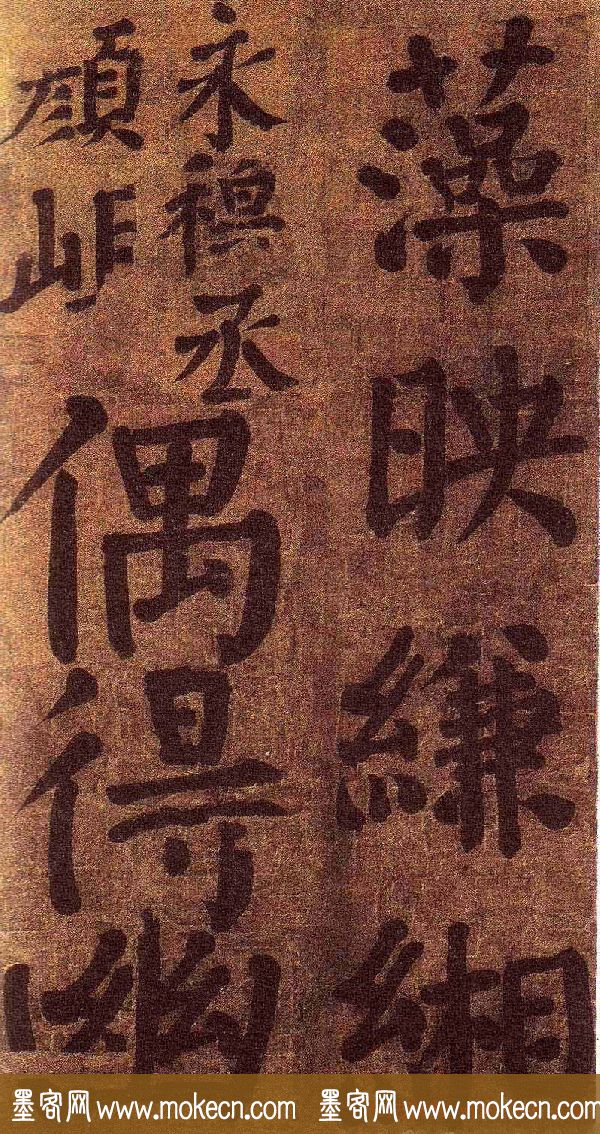 藻映縑緗
永丞
非
偶得幽
墨客网 www.mokecn.com 墨客网 www.mokecn.com